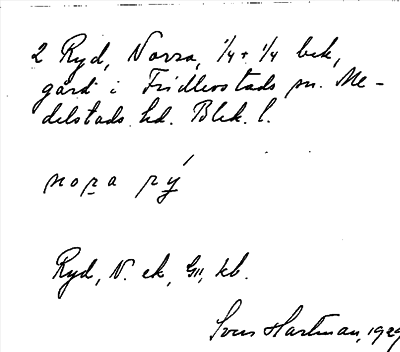 2 Ryd, Norra, 1/4 + 1/4 bek,
gård i Fridlevstads sn. Me-
delstads hd. Blek. l.
nora rý
Ryd, N. ek, GII, kb.
Sven Hartman, 1929